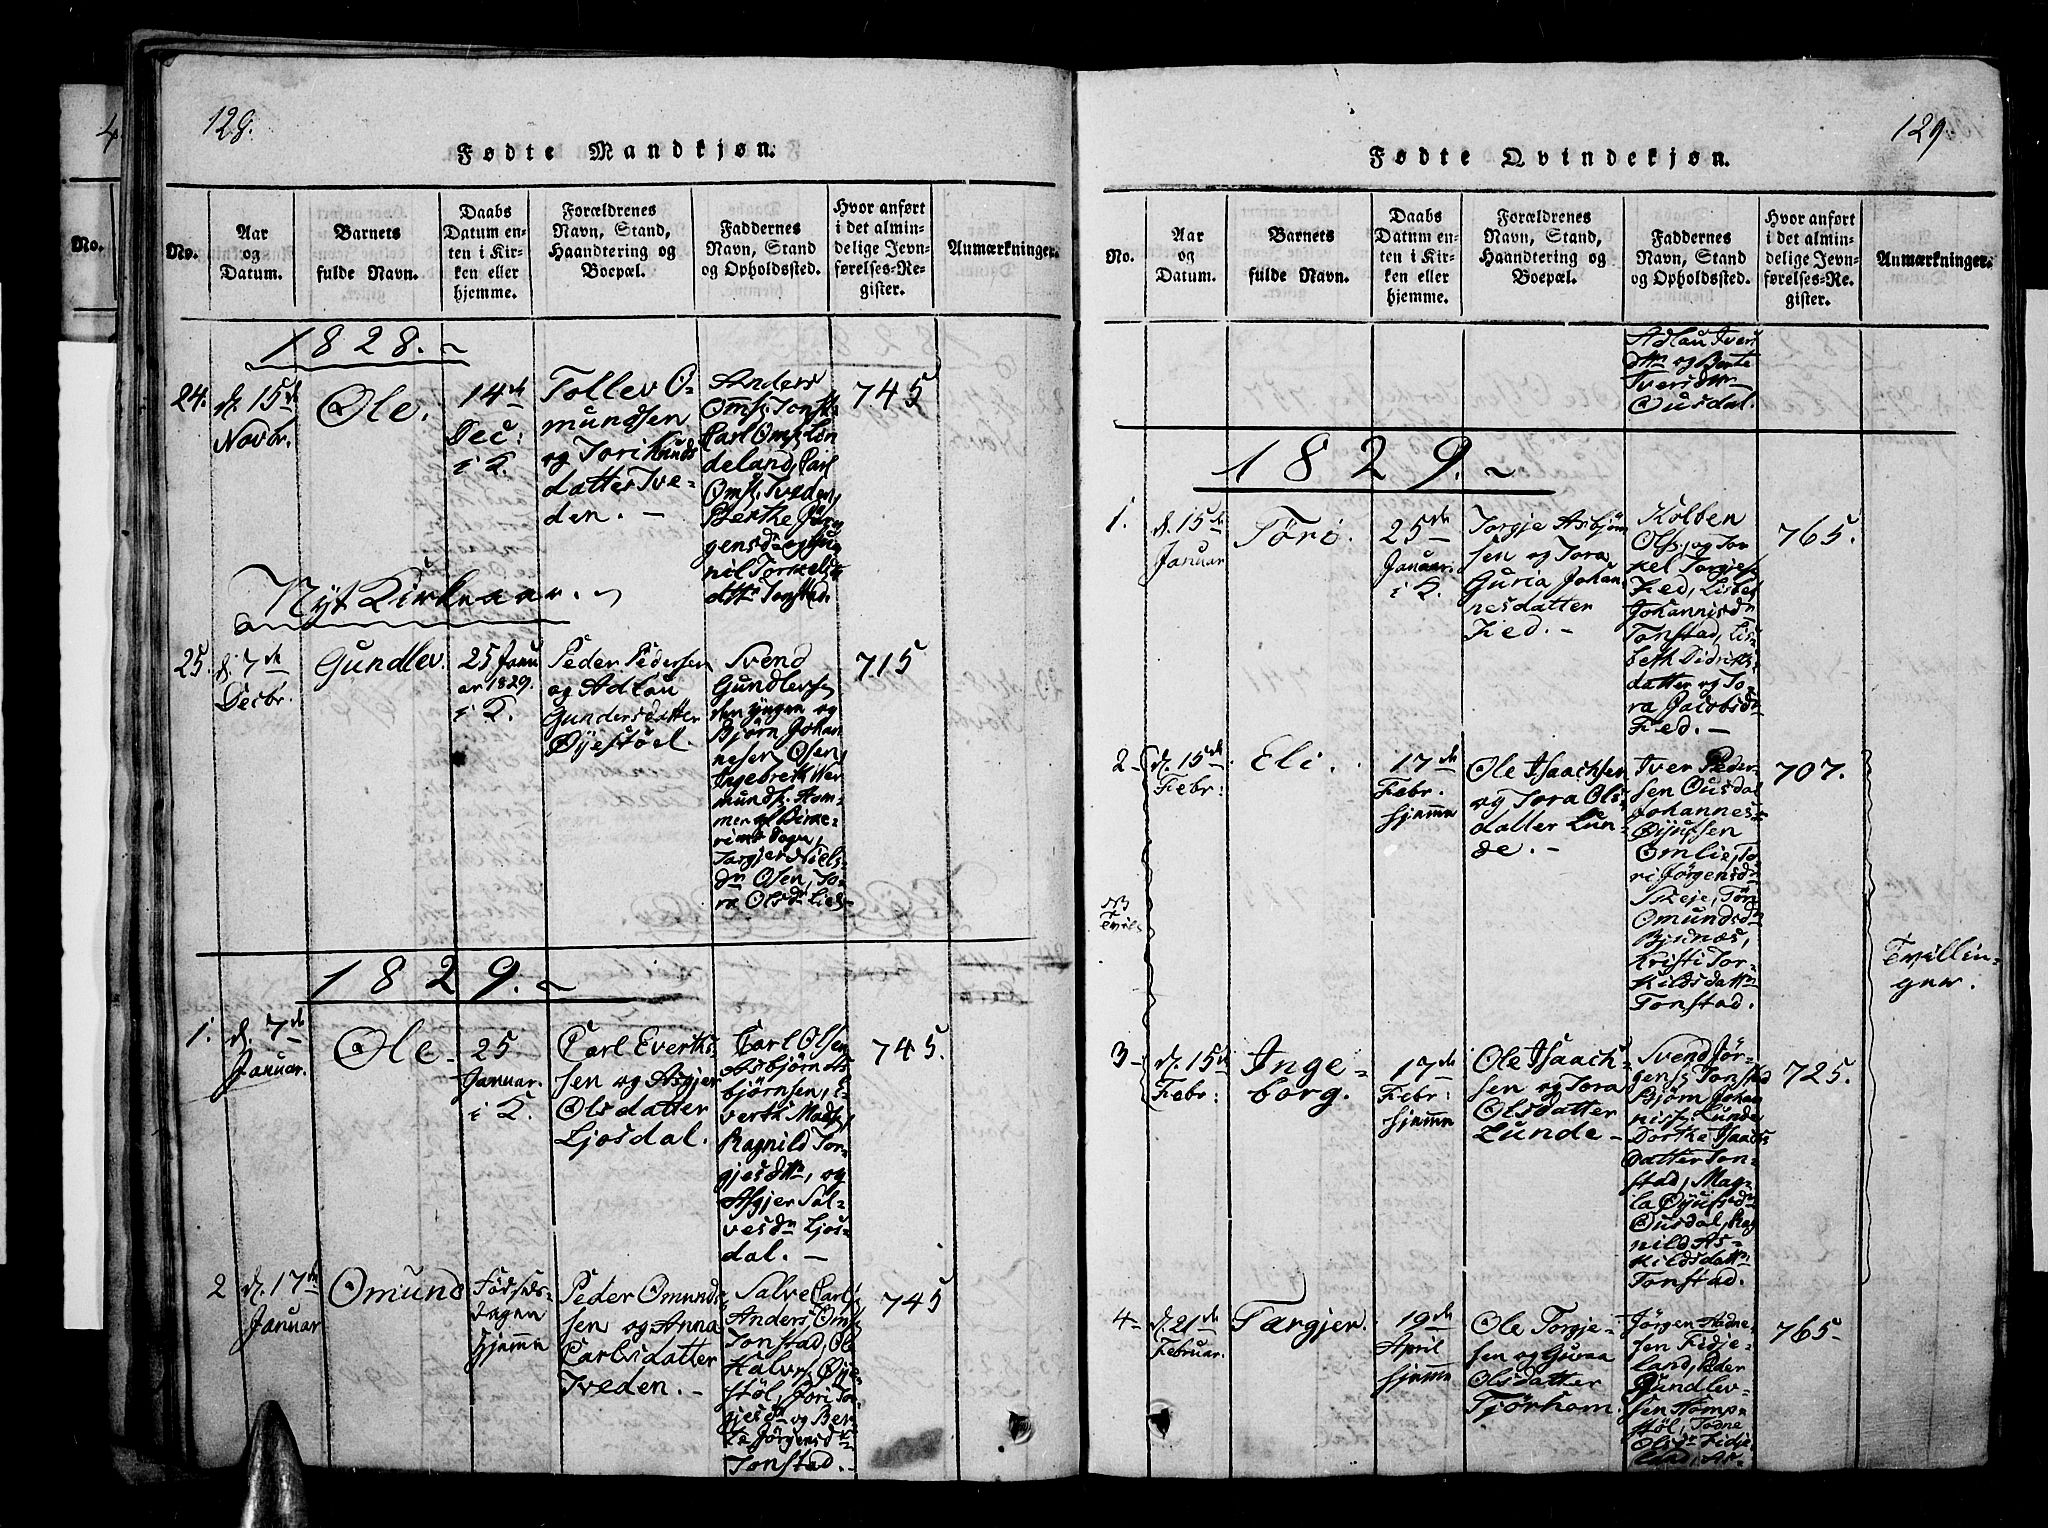 128.
Fødte Mandkjøn.
No.
Aar
og
Datum.
Barnets
fulde Navn.
Daabs
Datum en-
ten i Kir-
ken eller
hjemme.
Forældrenes
Navn, Stand,
Haandtering og
Boepæl.
Faddernes
Navn, Stand
og Opholdssted.
Hvor anført
i det almin-
delige Jevn-
førelses-Re-
gister.
Anmærkninger.
1828.
24.
d. 15de
Novbr.
Ole.
14de
Dec:
i K.
Tollev O-
mundsen
og Tori Knuds
datter Tve-
den.
Anders
Oms. Tonst.
Carl Oms. Lon
deland, Carl
Oms. Tveden,
Berthe Jør
gensd. og Gu
nil Torkelds
dtr. Tonstad.
745
Nyt Kirkeaar.
25.
d. 7de
Decbr.
Gundlev.
25 Janu
ar 1829.
i K.
Peder Pedersen
og Adlau
Gundersdatter
Øyestøel.
Svend
Gundlevsen
den yngre og
Bjørn Johan
nesen Osen,
Ingebreth Wer
munds.
Targjer Niels-
dn Osen, To-
ra Olsd.
715
1829.
1.
d. 7de
Januar.
Ole
25
Januar.
i K.
Carl Everts-
sen og Asgjer
Olsdatter
Ljosdal.
Carl Olsen
Asbjørn As-
bjørnsen, E-
verth Mads.
Ragnild Tor-
gjesdttr, og
Asgjer Sal-
vesdn Ljos-
dal.
745.
2
d. 17de
Januar
Omund
Fødsels-
dagen
hjemme
Peder Omund-
sen og Anna
Carlsdatter
Tveden.
Salve Carls.
Anders Oms.
Tonstad, Ole
Halvs. Øye-
støl, Jori Tor-
gjesdn og Ber-
te Jørgensdn
Tonstad.
745
129.
Fødte Qvindekjøn.
No.
Aar
og
Datum.
Barnets
fulde Navn.
Daabs
Datum en-
ten i Kir-
ken eller
hjemme.
Forældrenes
Navn, Stand,
Haandtering og
Boepæl.
Faddernes
Navn, Stand
og Opholdssted.
Hvor anført
i det almin-
delige Jevn-
førelses-Re-
gister.
Anmærkninger.
Adlau Iver
dttr og Berte
Iversdttr
Ousdal.
1829.
1.
d. 15de
Januar
Tørø.
25de
Januar.
i K.
Torgje Asbjørn
sen og Tora
Guria Johan
nesdatter
Fied.
Kolben
Ols. og Tor
kel Torgjes.
Fied, Lisbet
Johannisdn
Tonstad, Lis-
beth Didriks-
datter og To-
ra Jacobsdn
Fied.
765.
2
d. 15de
Febr:
Eli.
17de
Febr.
hjemme
Ole Isaachsen
og Tora Ols
datter Lun-
de.
Iver Peder-
sen Ousdal
Johannes
Øyufsen
Omlie, To-
ri Jørgensdn
Skeje, Tør
Omundsdn
Bjunæs,
Kristi Tor-
kildsdattr
Tonstad.
707.
NB
Tvil.
Tvillin-
ger.
3
d. 15de
Febr:
Inge-
borg.
17de
Febr:
hjemme
Ole Isaach-
sen og Tora
Olsdatter
Lunde
Svend Jør-
gens. Tonstad
Bjørn Johan
nis. Lunde
Dorthe Isaachs
datter Ton-
stad, Mag-
la Øyufsdn
Ousdal, Rag
nild As-
kildsdattr
Tonstad.
725.
4
d. 21de
Februar.
Targjer.
19de
April
hjemme
Ole Torgje-
sen og Guraa
Olsdatter
Tjørhom.
Jørgen Aadne-
sen Fidje-
land, Peder
Gundlev-
sen Homp-
støl, Aadne
Olsdn Fidje-
land, As-
765